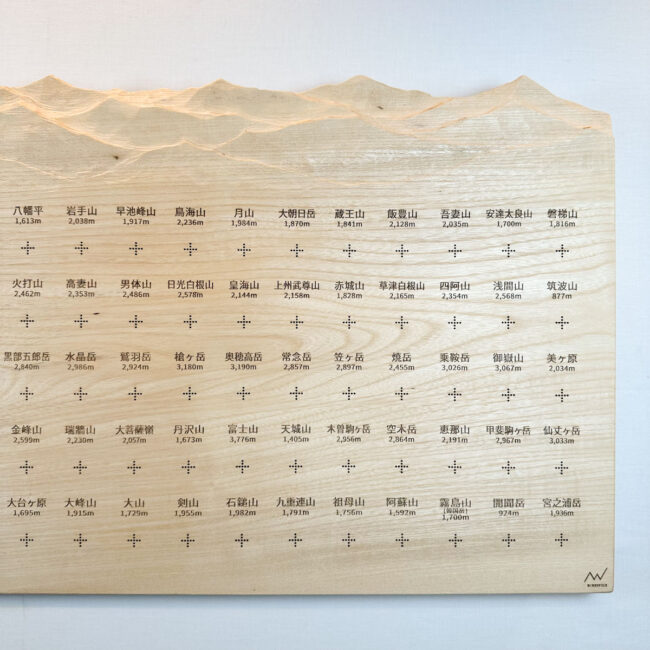 八幡平 岩手山 早池峰山 鳥海山 月山 大朝日岳 蔵王山 飯豊山 吾妻山 安達太良山 磐梯山
1,613m 2,038m 1,917m 2,236m 1,984m 1,870m 1,841m 2,128m 2,035m 1,700m 1,816m
火打山 高妻山 男体山 日光白根山 皇海山 上州武尊山 赤城山 草津白根山 四阿山 浅間山 筑波山
2,462m 2,353m 2,486m 2,578m 2,144m 2,158m 1,828m 2,165m 2,354m 2,568m 877m
黒部五郎岳 水晶岳 鷲羽岳 槍ヶ岳 奥穂高岳 常念岳 笠ヶ岳 焼岳 乗鞍岳 御嶽山 美ヶ原
2,840m 2,986m 2,924m 3,180m 3,190m 2,857m 2,897m 2,455m 3,026m 3,067m 2,034m
金峰山 瑞牆山 大菩薩嶺 丹沢山 富士山 天城山 木曽駒ヶ岳 空木岳 恵那山 甲斐駒ヶ岳 仙丈ヶ岳
2,599m 2,230m 2,057m 1,673m 3,776m 1,405m 2,956m 2,864m 2,191m 2,967m 3,033m
大台ヶ原 大峰山 大山 剣山 石鎚山 九重連山 祖母山 阿蘇山 霧島山 開聞岳 宮之浦岳
(韓国岳)
1,695m 1,915m 1,729m 1,955m 1,982m 1,791m 1,756m 1,592m 1,700m 924m 1,936m